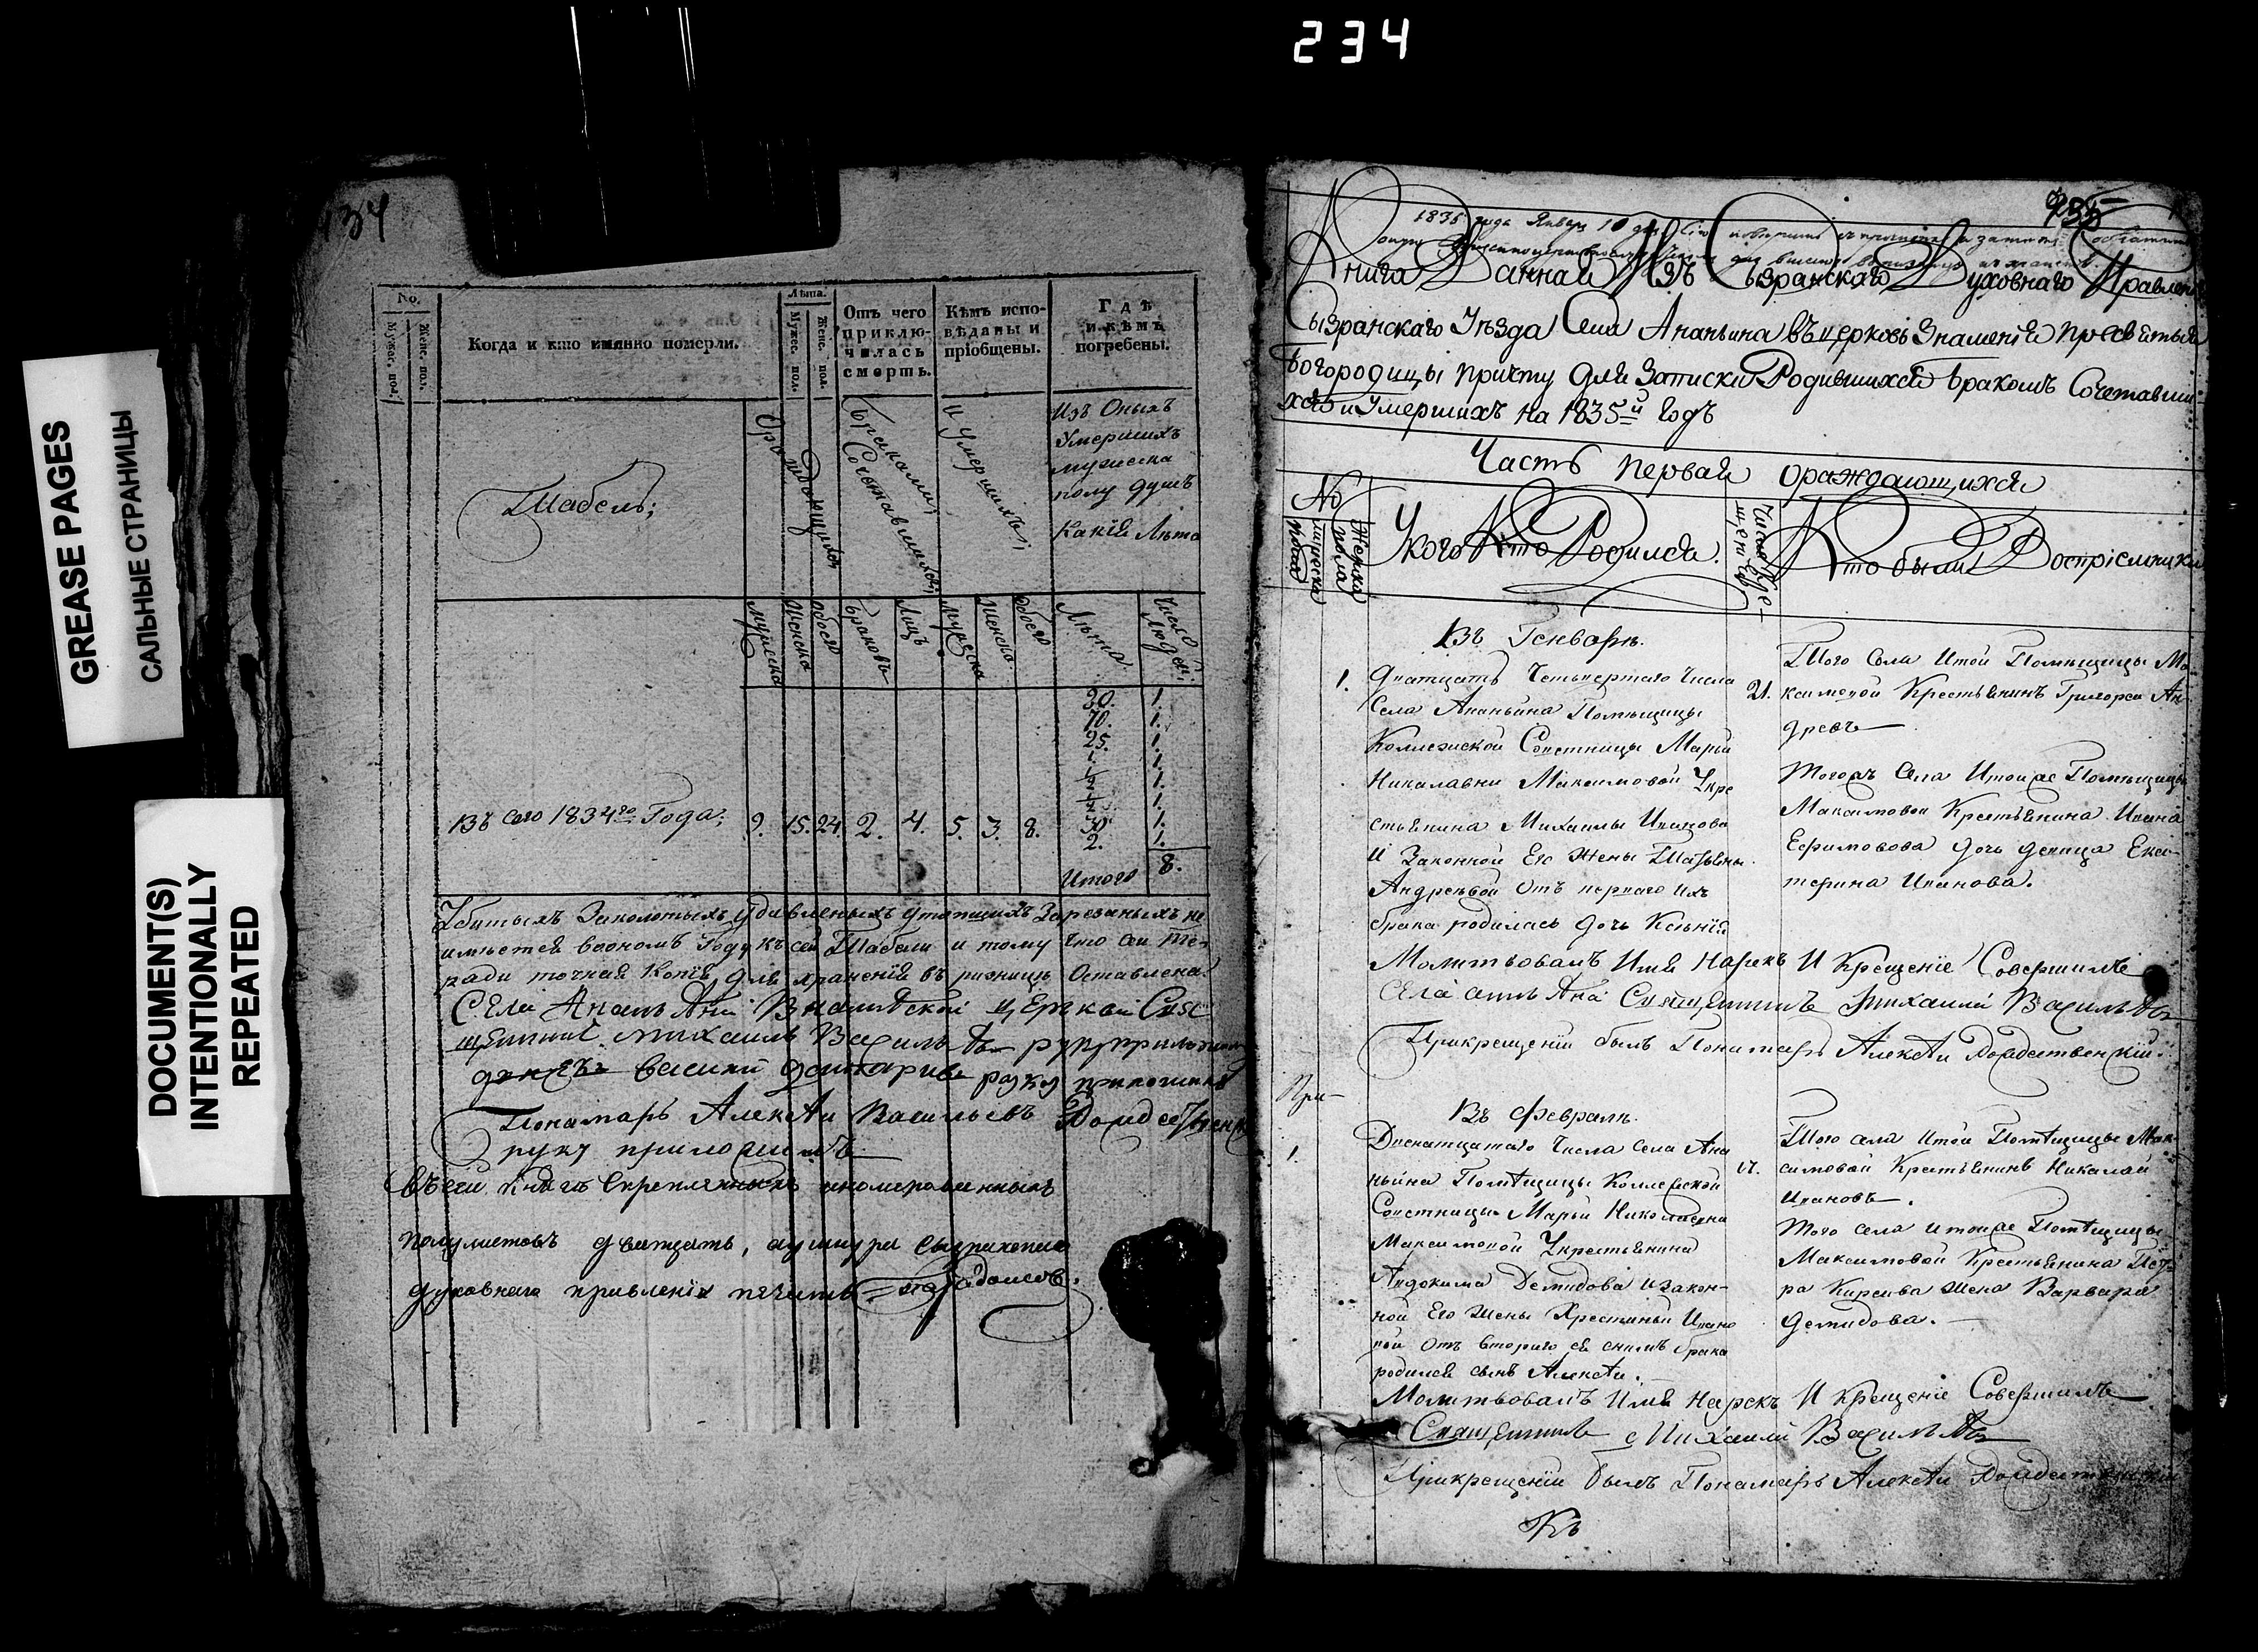 234
GREASE PAGES
САЛЬНЫЕ СТРАНИЦЫ
DOCUMENT(S)
INTENTIONALLY
REPEATED
134
No.
Мужес. пол.
Женс. пол.
Когда и кто имянно померли.
Лѣта.
Мужес. пол.
Женс. пол.
Отъ чего
приклю-
чилась
смерть.
Кѣмъ испо-
вѣданы и
пріобщены.
Гдѣ
и кѣмъ
погребены.
Табель;
О раждающихся
Браками
Сочетавшихся;
и Умершихъ;
Изъ Оныхъ
Умершихъ
мужеска
полу душъ
Какія Лѣта
мужеска
женска
обоего
браковъ
Лицъ
мужеска
женска
обоего
Лѣта
Число
Людей;
30. 1.
70. 1.
25. 1.
1.
1.
1.
30. 1.
2. 1.
Въ Сего 1834го Года; 9. 15. 24. 2. 4. 5. 3. 8.
Итого 8.
Убитыхъ Заколотыхъ удавленыхъ утопшихъ Зарезаныхъ не
имѣется въ ономъ Году къ сей Табели и тому что сей Те-
ради точная Копія для храненія въ ризницѣ Оставлена.
Села Ананьина Знаменской церкви Свя
щенникъ Михаилъ Васильевъ руку приложилъ
Василий руку приложилъ
Пономарь Алексѣй Васильевъ
руку приложилъ
Въ сей книгѣ скрепленныхъ и номерованныхъ
полулистовъ двадцать, а у шнура Сызранскаго
духовнаго правленія печать
235
1835 года Января 10 дня
Книга Данная Изъ Сызранскаго Духовнаго Правленія
Сызранскаго Уѣзда Села Ананьина въ церковь Знаменія Пресвятыя
Богородицы причту для Записки Родившихся браком Сочетавши-
хся и Умершихъ на 1835й Годъ
Часть первая о раждающихся
No
мужеска пола
Женска пола
У кого Кто Родился.
Число Кре-
щенія
Кто были Воспріемники
Въ Генварѣ.
1. Дватцать Четвертаго Числа
Села Ананьина Помѣщицы
Коллежской Совѣтницы Марьи
Николавны Максимовой У кре
стьянина Михаилы Иванова
И Законной Его Жены Татьяны
Андреѣвой Отъ перваго Ихъ
брака родилась дочь Ксенія
Того Села И той Помѣщицы Ма
21. ксимовой Крестьянинъ Григорей Ан-
древъ
Тогожъ Села И тоиже Помѣщицы
Максимовой Крестьянина Ивана
Ефимовова дочь девица Ека-
терина Иванова.
Молитвовалъ Имя Нарекъ И Крещеніе Совершилъ
Села Ананьина Священникъ Михаилъ Васильевъ
При крещеніи былъ Пономарь Алексѣй Рождественскій.
При-
Въ Февралѣ.
1. Двенатцатаго Числа Села Ана
ньина Помѣщицы Коллежской
Совѣтницы Марьи Николавны
Максимовой У крестьянина
Авдокима Демидова И закон-
ной Его Жены Хрестиньи Ивано
вой Отъ втораго ея с нимъ брака
родился сынъ Алексѣй.
Того села И той Помѣщицы Мак-
симовой Крестьянинъ Николай
Ивановъ.
Того села и тоиже Помѣщицы
Максимовой Крестьянина Пет-
ра Киреива жена Варвара
Демидова.
Молитвовалъ Имя Нарекъ И Крещеніе Совершилъ
Священникъ Михаилъ Васильевъ
При крещеніи былъ Пономарь Алексѣй Рождественскій
Къ